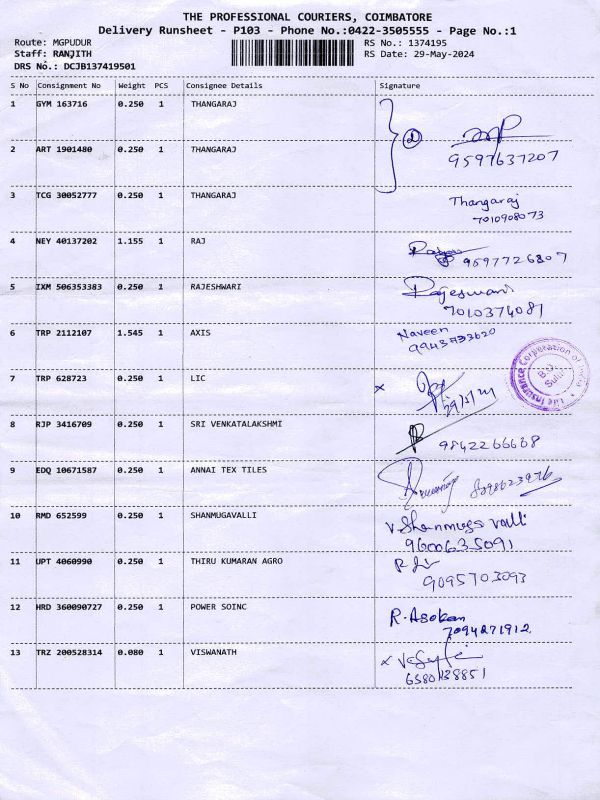 THE PROFESSIONAL COURIERS, COIMBATORE
Delivery Runsheet - P103 - Phone No.:0422-3505555 - Page No.:1
Route: MGPUDUR RS No.: 1374195
Staff: RANJITH RS Date: 29-May-2024
DRS No.: DCJB137419501
S No Consignment No Weight PCS Consignee Details Signature
1 GYM 163716 0.250 1 THANGARAJ
2 ART 1901480 0.250 1 THANGARAJ 9597637207
3 TCG 30052777 0.250 1 THANGARAJ Thangaraj
7010908073
4 NEY 40137202 1.155 1 RAJ 9597726807
5 IXM 506353383 0.250 1 RAJESHWARI Rajeswari
7010374081
6 TRP 2112107 1.545 1 AXIS Naveen
7 TRP 628723 0.250 1 LIC
Life Insurance Corporation of India
B.O
Sulur
8 RJP 3416709 0.250 1 SRI VENKATALAKSHMI 9842266668
9 EDQ 10671587 0.250 1 ANNAI TEX TILES
10 RMD 652599 0.250 1 SHANMUGAVALLI V. Shanmuga valli
9600635091
11 UPT 4060990 0.250 1 THIRU KUMARAN AGRO
9095703093
12 HRD 360090727 0.250 1 POWER SOINC R. Asokan
7094271912
13 TRZ 200528314 0.080 1 VISWANATH
6580138851